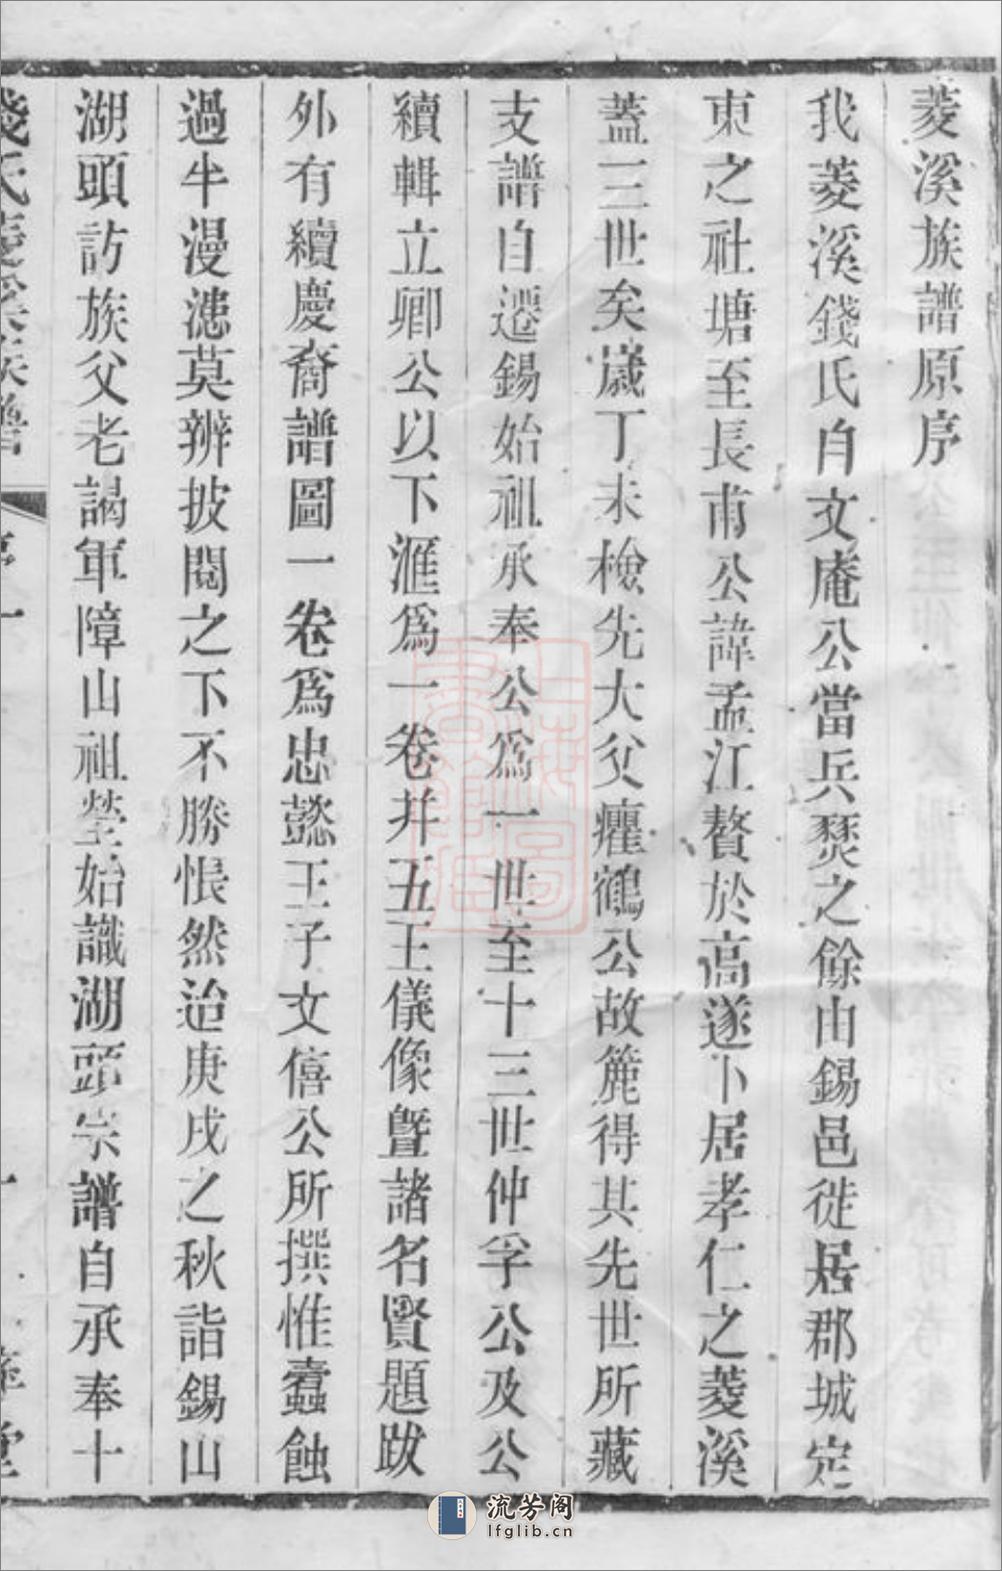 菱溪族譜原序
我菱溪錢氏自文庵公當兵燹之餘由錫邑徙居郡城定
東之社塘至長甫公諱孟江贅於高遂卜居孝仁之菱溪
蓋三世矣歲丁未檢先大父癯鶴公故簏得其先世所藏
支譜自遷錫始祖承奉公爲一世至十三世仲孚公及公
續輯立卿公以下滙爲一卷并五王儀像暨諸名賢題跋
外有續慶裔譜圖一卷爲忠懿王子文僖公所撰惟蠹蝕
過半漫漶莫辨披閱之下不勝悵然迨庚戌之秋詣錫山
湖頭訪族父老謁軍障山祖塋始識湖頭宗譜自承奉十
錢氏菱溪族譜
流芳阁
lfglib.cn